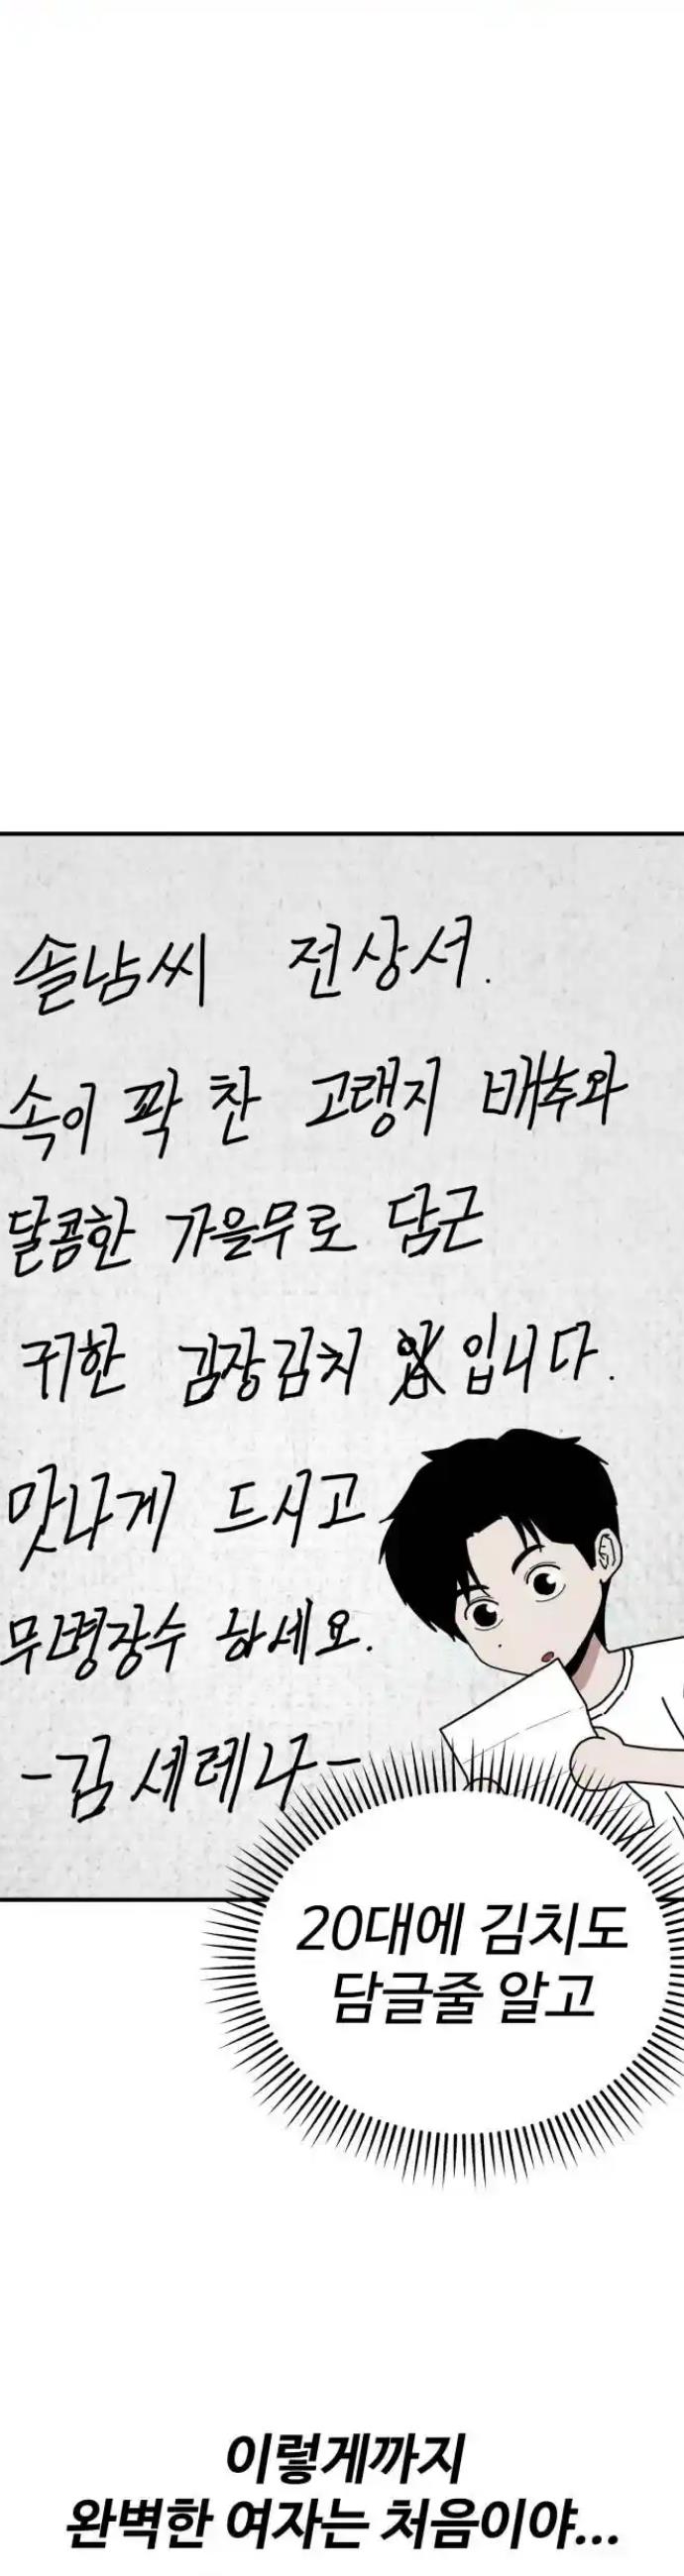 솔남씨 전상서.
속이 꽉 찬 고랭지 배추와
달콤한 가을무로 담근
귀한 김장김치 입니다.
맛나게 드시고
무병장수 하세요.
-김세레나-
20대에 김치도
담글줄 알고
이렇게까지
완벽한 여자는 처음이야...